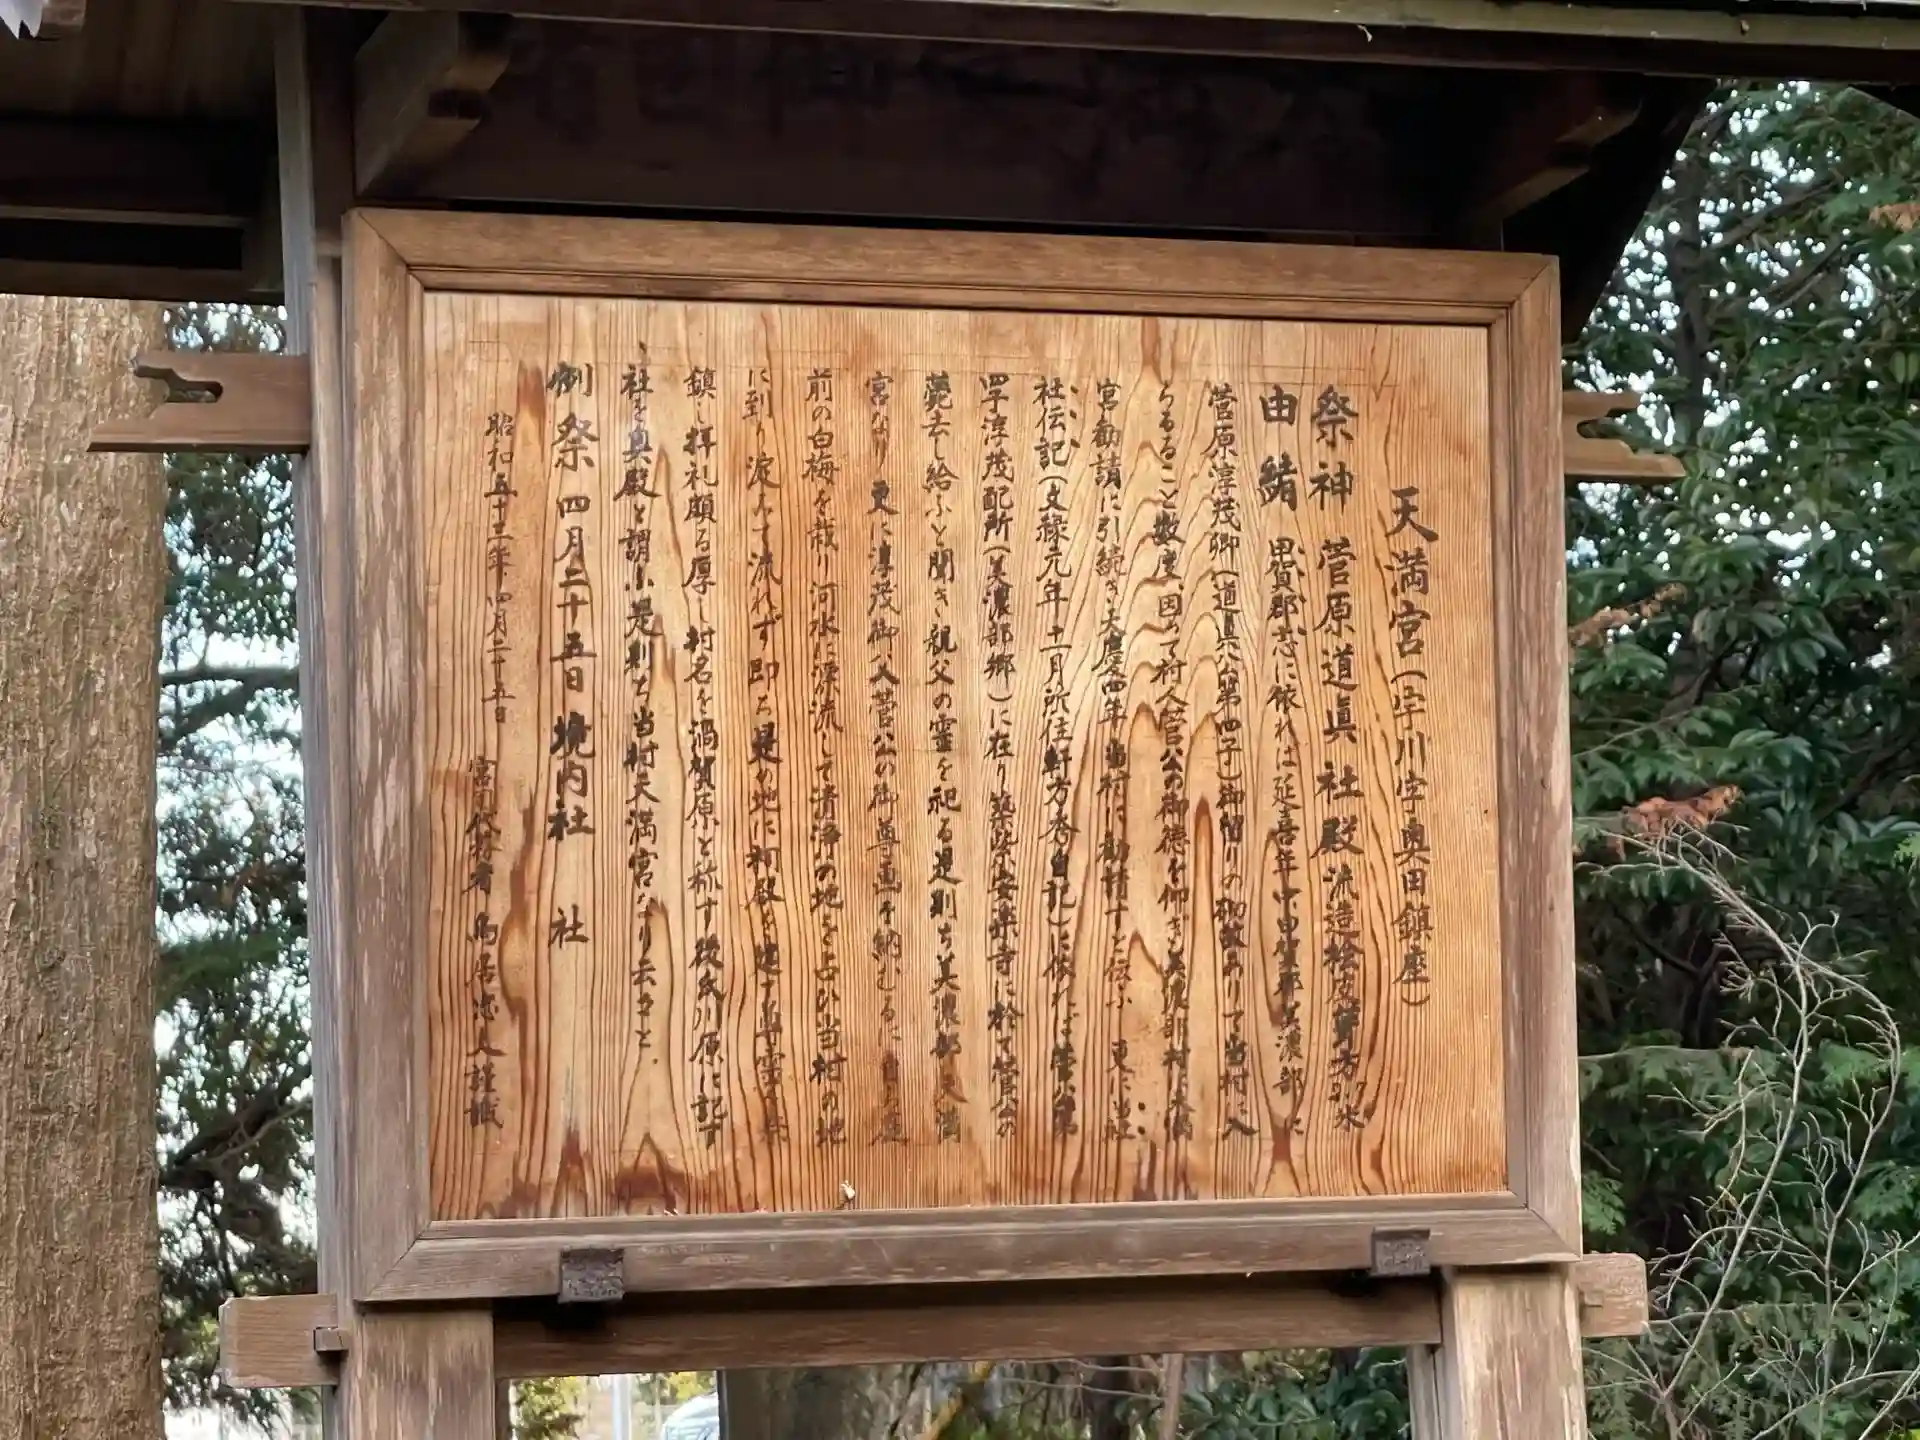 天満宮(宇川字奥田鎮座)
祭神 菅原道眞 社殿 流造桧皮葺方
由緒 甲賀郡志に依れば延喜年中甲賀郡美濃部に
菅原淳茂卿(道眞公第四子)御留りの砌故ありて当村に入
らるること数度、因って村人菅公の御徳を仰ぎ美濃部村天満
宮勧請に引続き天慶四年当村に勧請すと伝ふ 更に当社
社伝記(文禄元年十一月所住軒方秀自記)に依れば菅公第
四子淳茂配所(美濃部郷)に在り築紫安楽寺に於て菅公の
薨去し給ふと聞き親父の靈を祀る是則ち美濃部天満
宮なり 更に淳茂御父菅公の御尊画を納むるに
前の白梅を栽り河水に漂流して清浄の地を占ひ当村の地
に到り淀みて流れず即ち是の地に祠殿を建す尊霊を
鎮し拝礼願る厚し村名を渦賀原と称す後氏川原に記す
社を奥殿と謂ふ是則ち当村天満宮なり云々と、
例祭 四月二十五日 境内社 社
昭和五十三年四月二十五日 宮司代務者 鳥居 人謹識